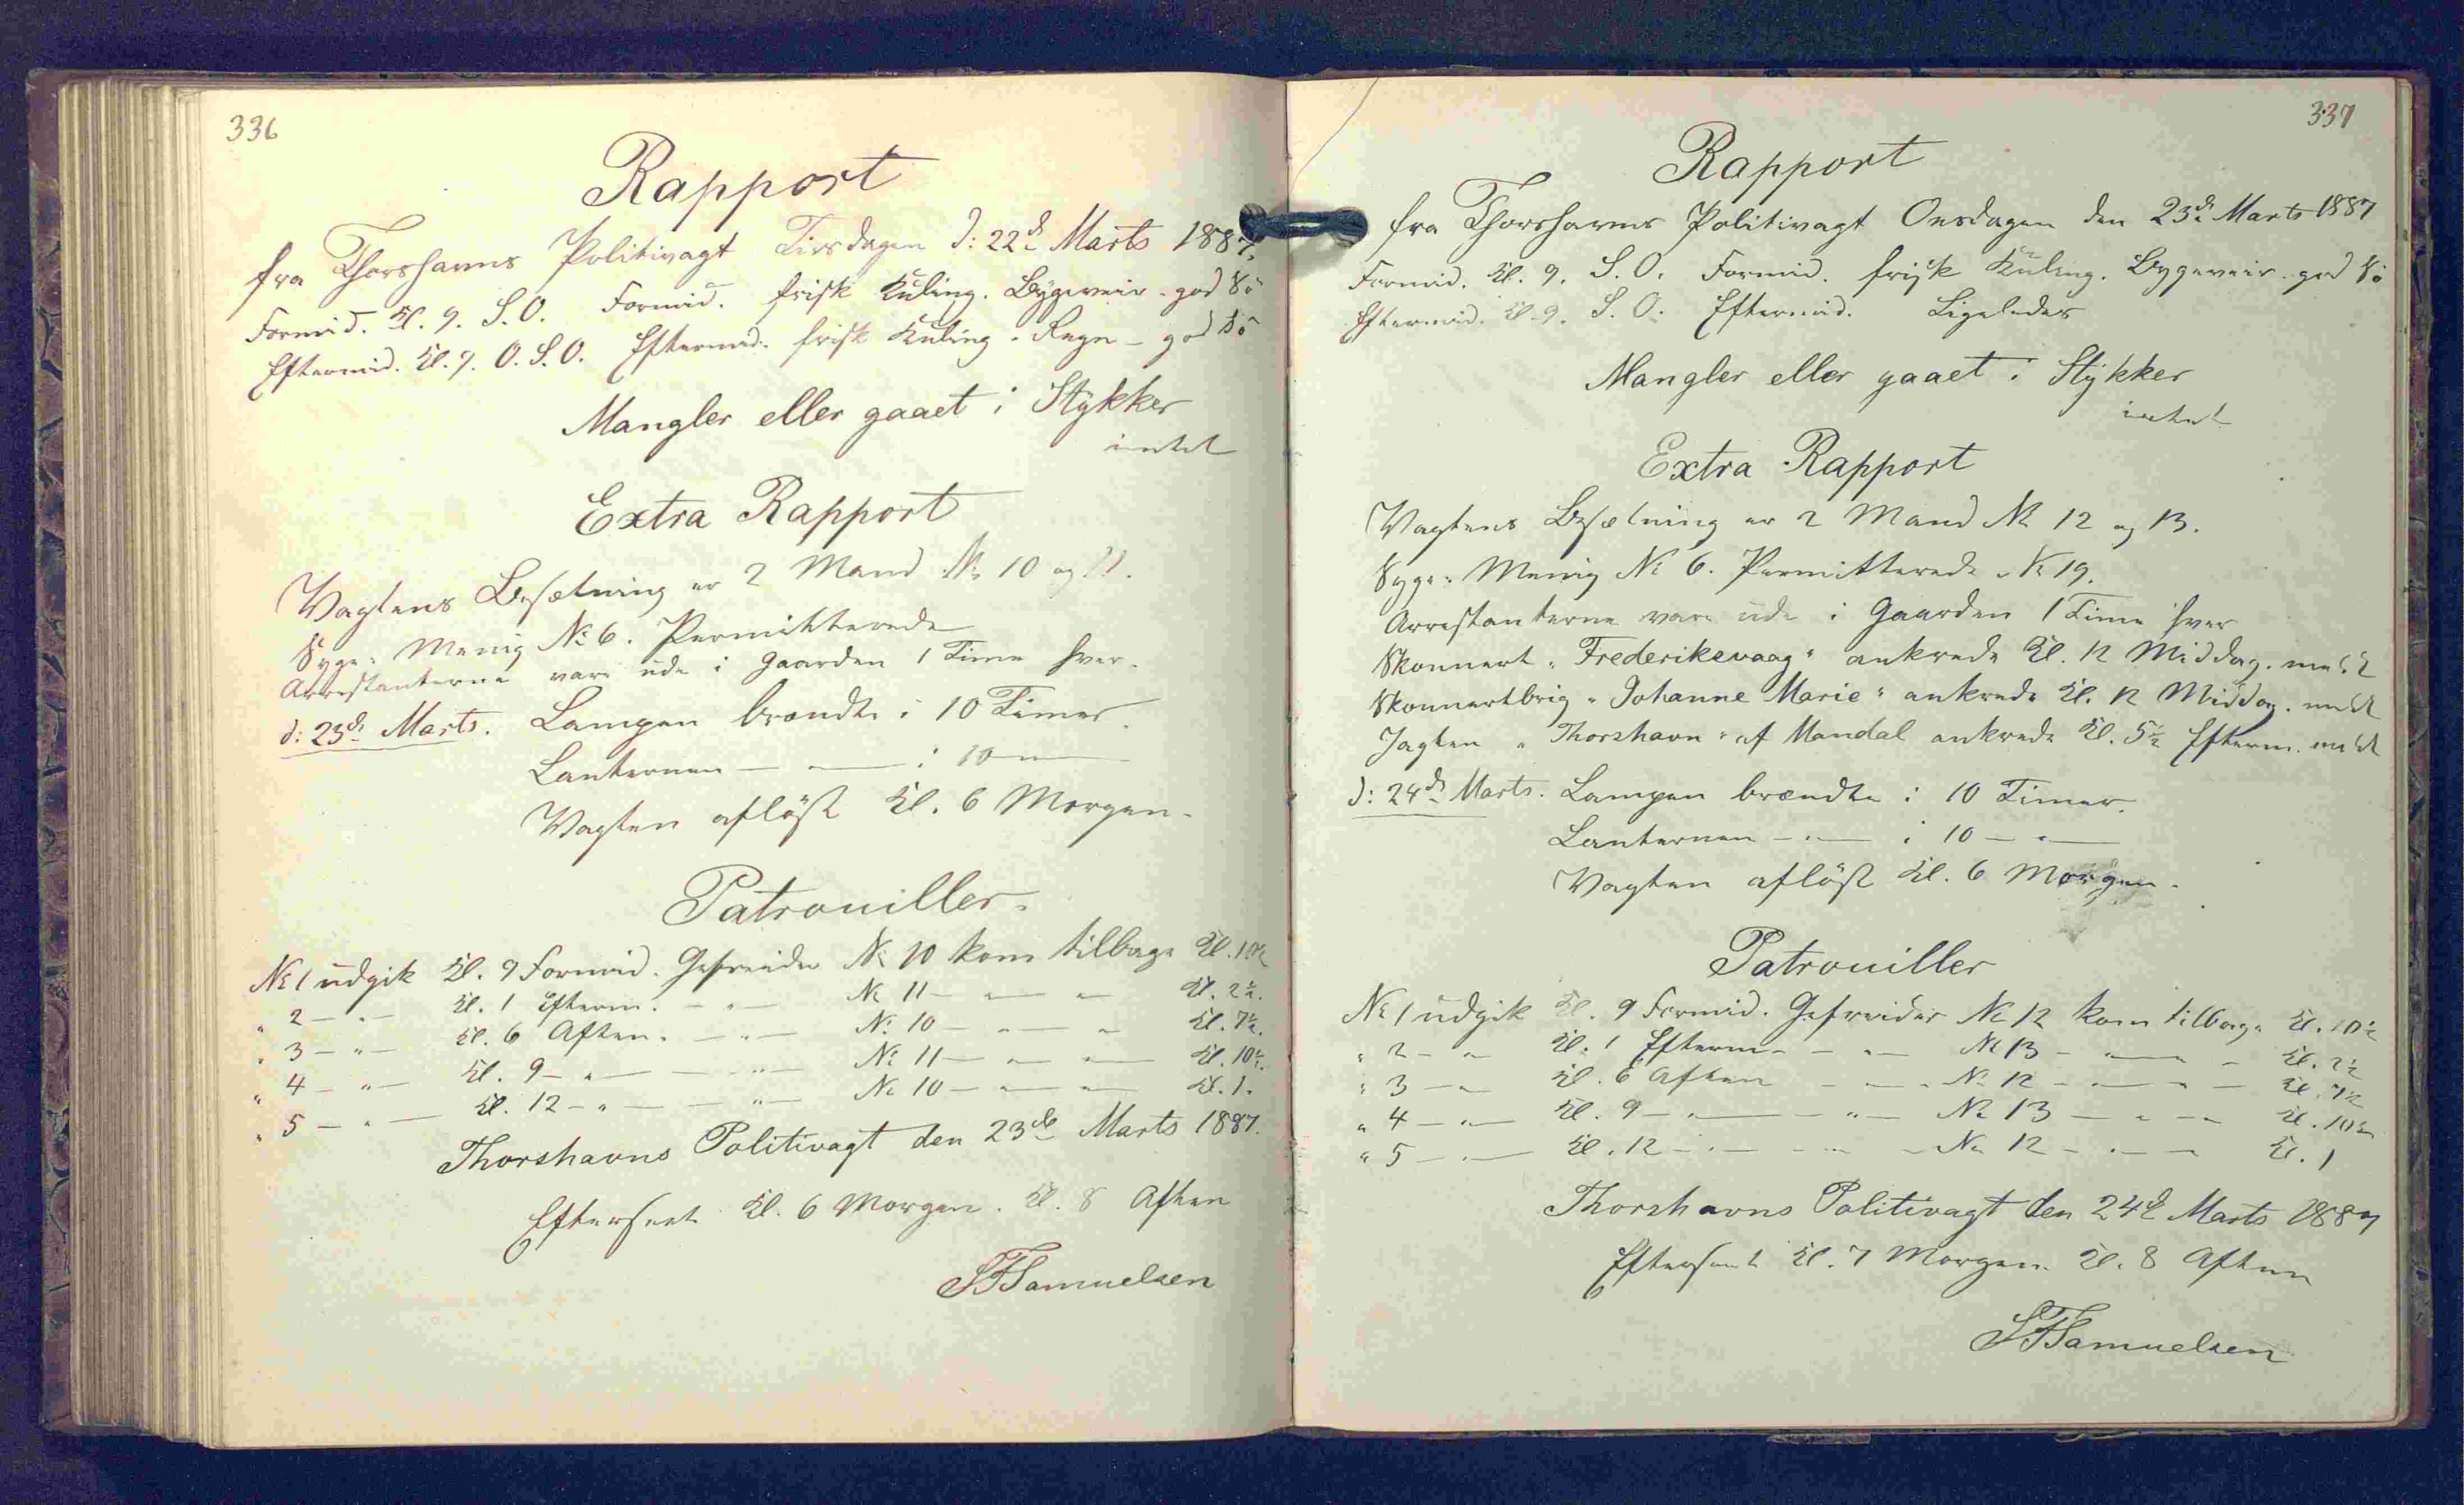 336
Rapport
fra Thorshavns Politivagt Tirsdagen d: 22de Marts 1887.
Formid. Kl. 9. S.O. Formid. frisk Kuling. Bygeveir. god Sö
Eftermid. Kl. 9. O.S.O. Eftermid. frisk Kuling. Regn - god Sö
Mangler eller gaaet i Stykker
intet
Extra Rapport
Vagtens Besætning er 2 Mand No 10 og 11.
Syge: Menig No 6. Permitterede
Arrestanterne vare ude i Gaarden 1 Time hver.
d: 23de Marts. Lampen brændte i 10 Timer.
Lanternen — " — i 10 — " —
Vagten aflöst Kl. 6 Morgen.
Patrouiller.
No 1 udgik Kl. 9 Formid. Gefreider No 10 kom tilbage Kl. 10½
" 2 — " — Kl. 1 Efterm. — " — No 11 — " — " — Kl. 2½.
" 3 — " — Kl. 6 Aften. — " — No 10 — " — " — Kl. 7½.
" 4 — " — Kl. 9 — " — — " — No 11 — " — " — Kl. 10½.
" 5 — " — Kl. 12 — " — — " — No 10 — " — " — Kl. 1.
Thorshavns Politivagt den 23de Marts 1887.
Efterseet Kl. 6 Morgen. Kl. 8 Aften
Samuelsen
337
Rapport
fra Thorshavns Politivagt Onsdagen den 23de Marts 1887
Formid. Kl. 9. S.O. Formid. frisk Kuling. Bygeveir. god Sö
Eftermid. Kl. 9. S.O. Eftermid. Ligeledes
Mangler eller gaaet i Stykker
intet
Extra Rapport
Vagtens Besætning er 2 Mand No 12 og 13.
Syge: Menig No 6. Permitterede No 19.
Arrestanterne vare ude i Gaarden 1 Time hver
Skonnert "Frederikevaag" ankrede Kl. 12 Middag. meldt
Skonnertbrig "Johanne Marie" ankrede Kl. 12 Middag. meldt
Jagten "Thorshavn" af Mandal ankrede Kl. 5½ Efterm. meldt
d: 24de Marts. Lampen brændte i 10 Timer.
Lanternen — " — i 10 — " —
Vagten aflöst Kl. 6 Morgen.
Patrouiller
No 1 udgik Kl. 9 Formid. Gefreider No 12 kom tilbage Kl. 10½
" 2 — " — Kl. 1 Efterm — " — No 13 — " — " — Kl. 2½
" 3 — " — Kl. 6 Aften — " — No 12 — " — " — Kl. 7½
" 4 — " — Kl. 9 — " — — " — No 13 — " — " — Kl. 10½
" 5 — " — Kl. 12 — " — — " — No 12 — " — " — Kl. 1
Thorshavns Politivagt den 24de Marts 1887
Efterseet Kl. 7 Morgen. Kl. 8 Aften
Samuelsen